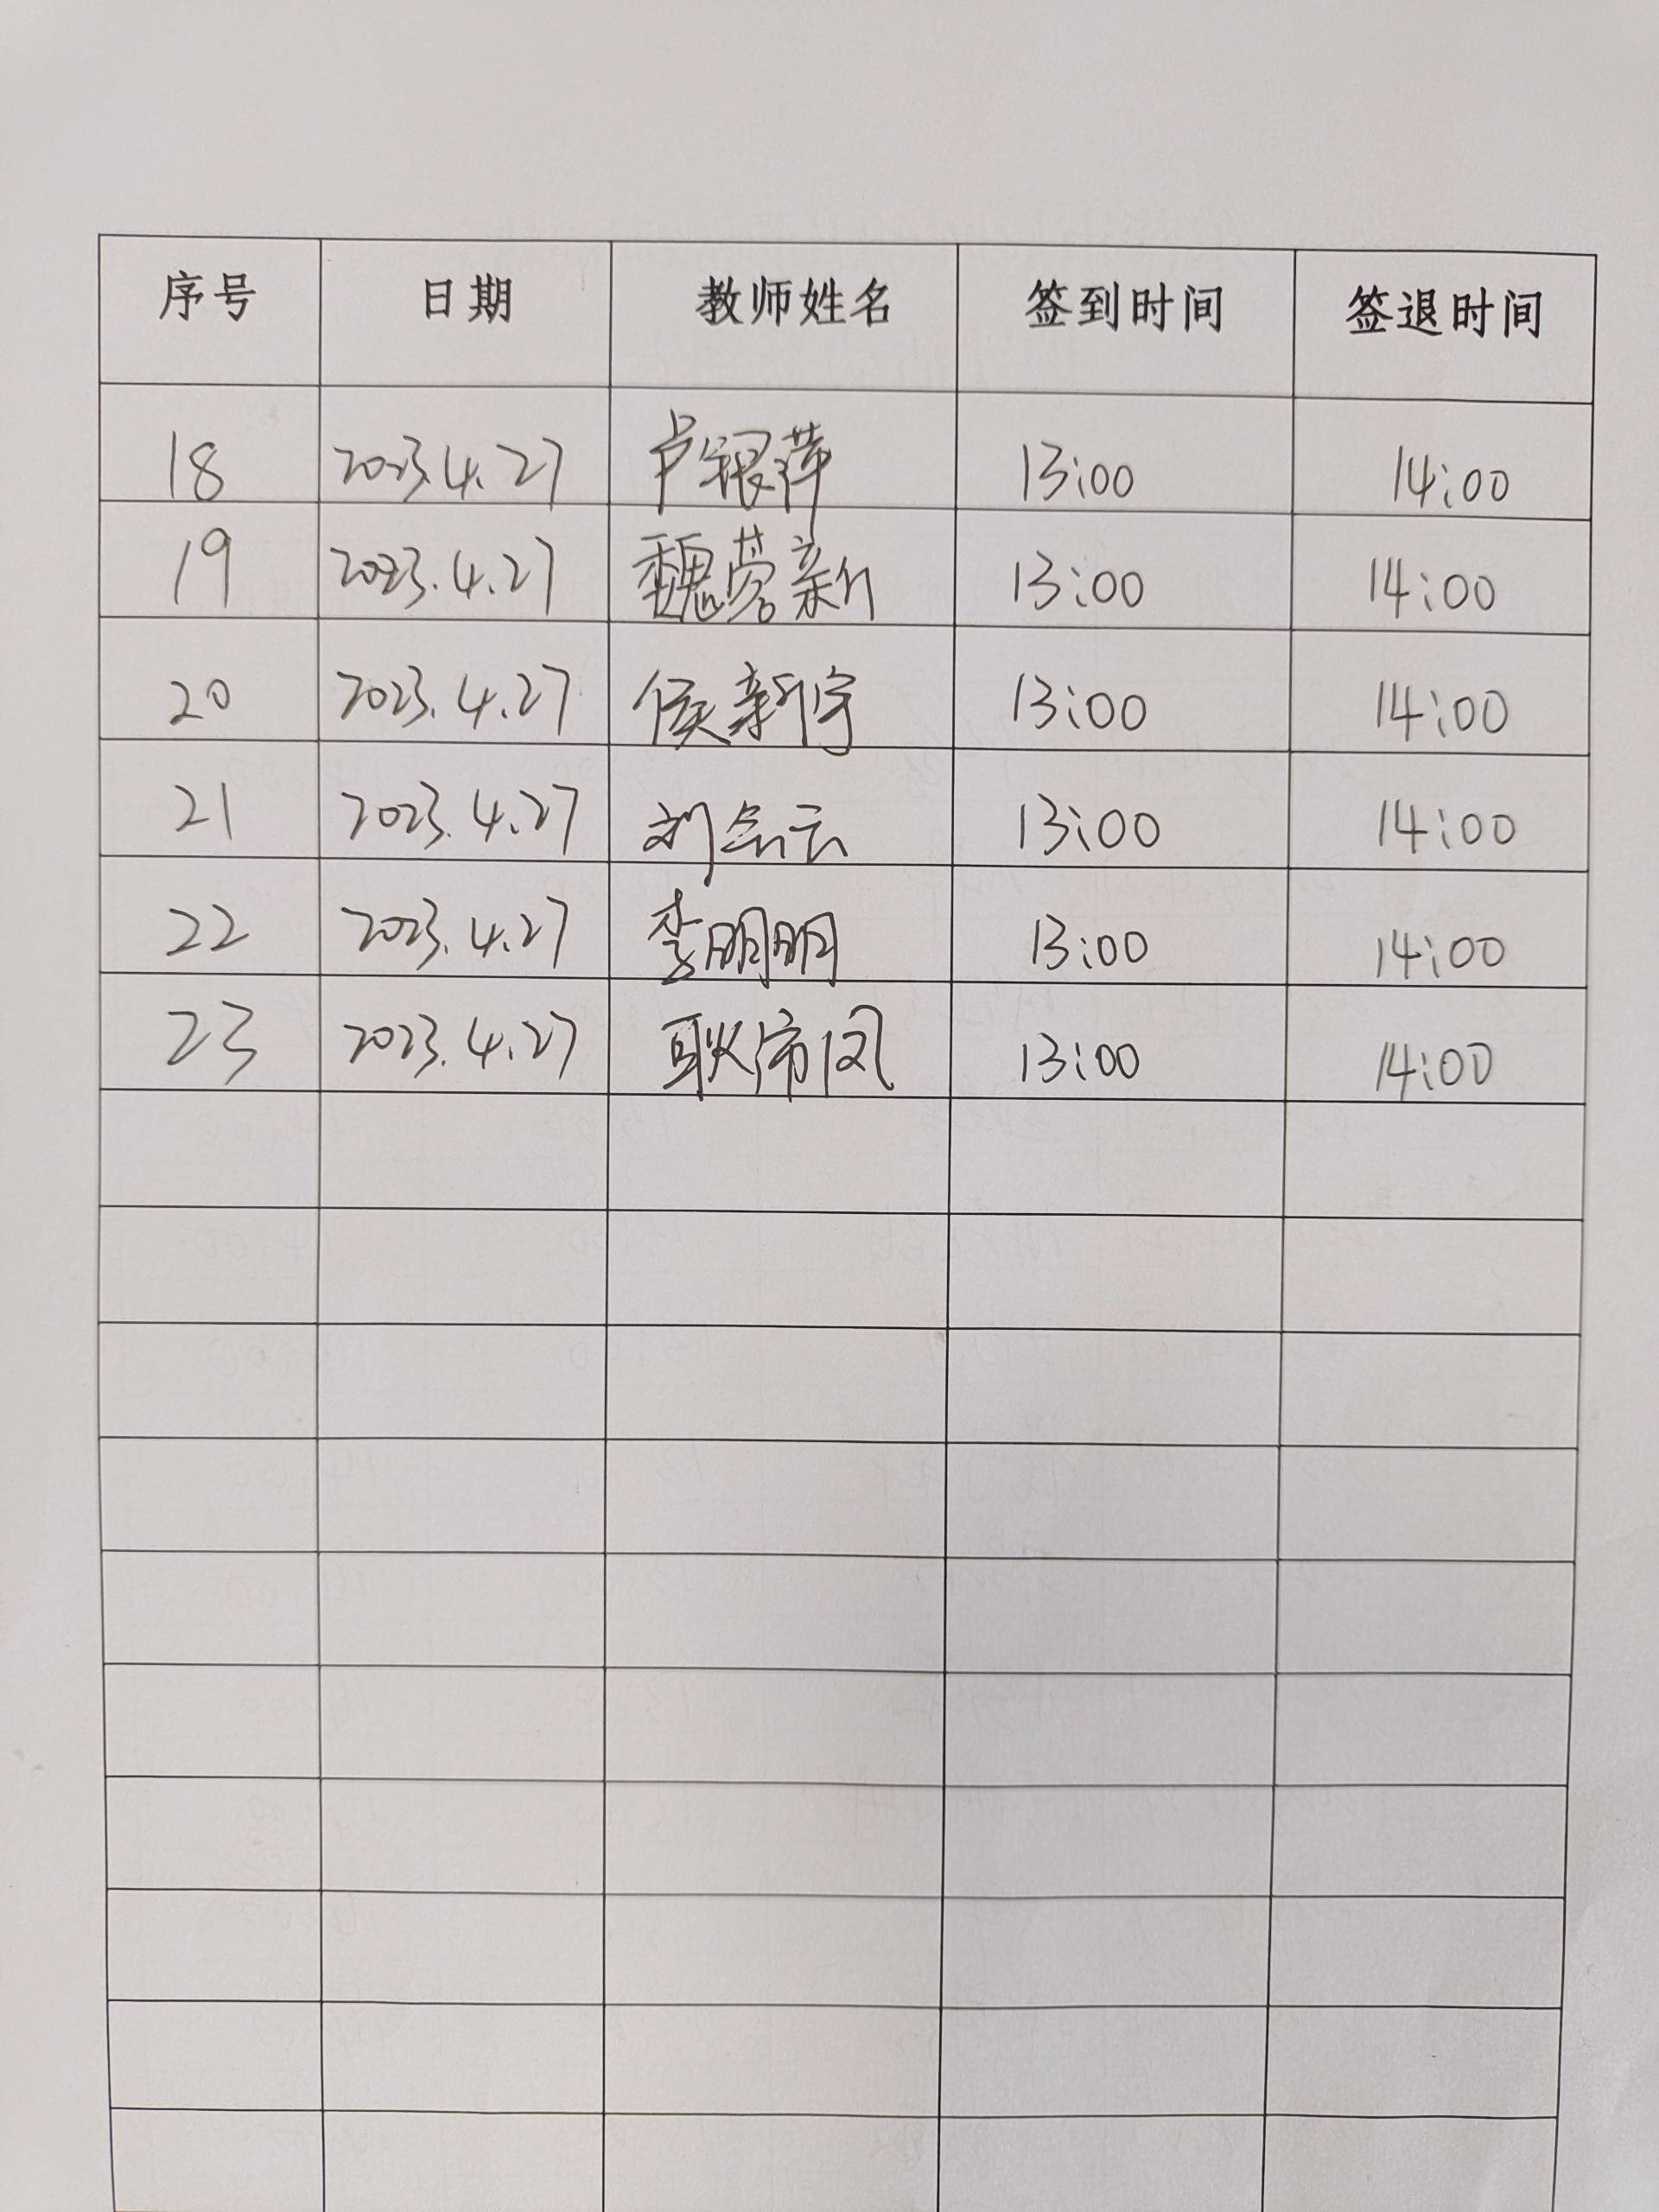 序号 日期 教师姓名 签到时间 签退时间
18 2023.4.27 卢银萍 13:00 14:00
19 2023.4.27 魏营新 13:00 14:00
20 2023.4.27 侯新宇 13:00 14:00
21 2023.4.27 刘会云 13:00 14:00
22 2023.4.27 李明明 13:00 14:00
23 2023.4.27 耿凤 13:00 14:00